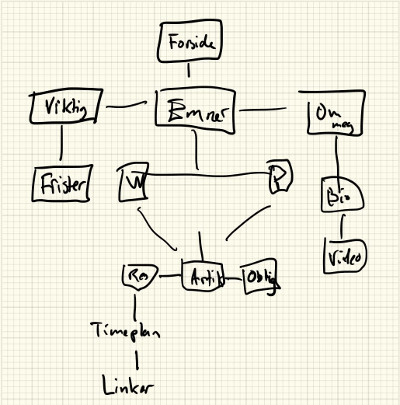 Forside
Viktig
Emner
Om
meg
Frister
W
P
Bio
Video
Res
Artik
Oblig
Timeplan
Linker